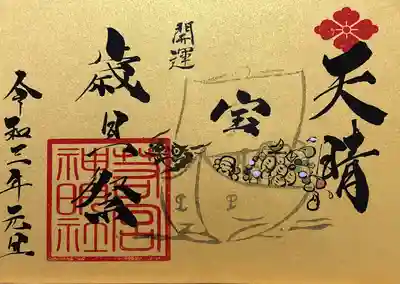 天晴
宝
開運
歳旦祭
令和二年 元旦
若宮
神明社